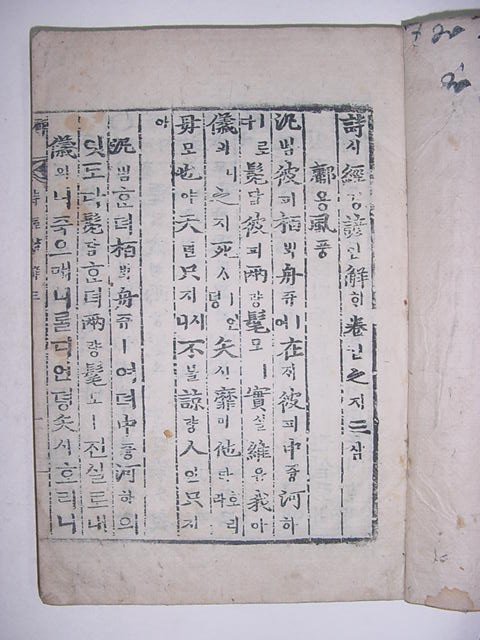 詩시經경諺언解ᄒᆡ卷권之지三삼
鄘용風풍
汎범彼피栢ᄇᆡᆨ舟쥬에在ᄌᆡ彼피中듕河하
ㅣ로髧담彼피兩량髦모ㅣ實실維유我아
儀의니之지死ᄉᆞㅣ언뎡矢시靡미他타호리라
母모也야天텬只지시니不불諒량人인只지
야
汎범ᄒᆞᆫ뎌栢ᄇᆡᆨ舟쥬ㅣ여뎌中듕河하의
잇도다髧담ᄒᆞᆫ뎌兩량髦모ㅣ진실로내
儀의니죽으매니를디언뎡矢시ᄒᆞ리니